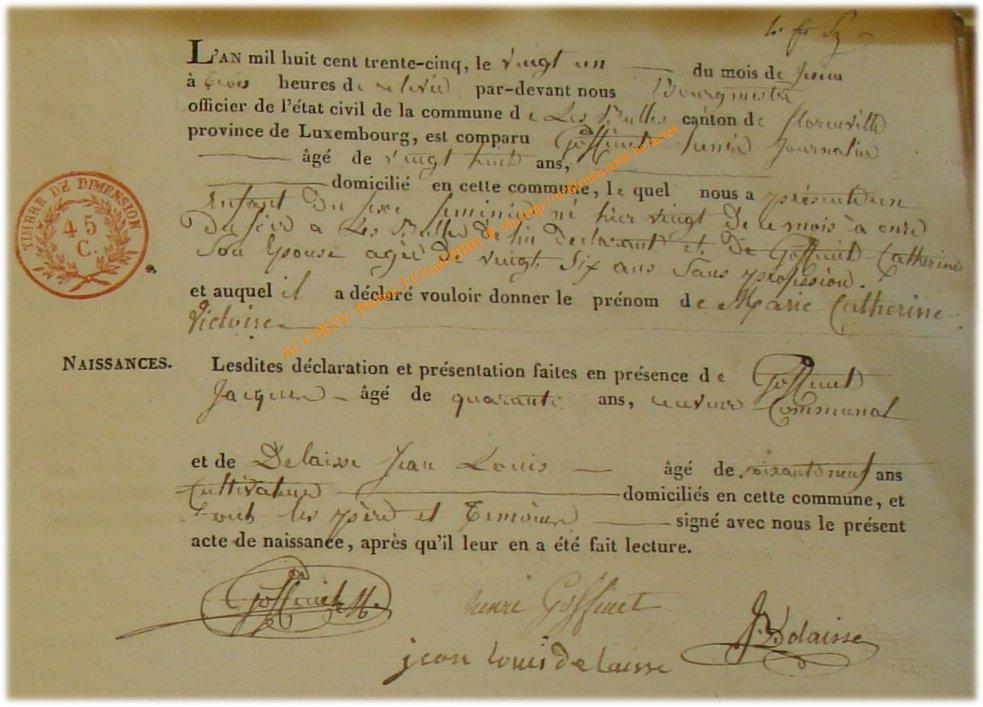 L'AN mil huit cent trente-cinq, le vingt un du mois de Juin
à trois heures de relevée par-devant nous Bourgmestre
officier de l'état civil de la commune de Les Bulles canton de florenville
province de Luxembourg, est comparu Goffinet henri Journalier
âgé de vingt huit ans,
domicilié en cette commune, le quel nous a présenté un
Enfant Du sexe feminin né hier vingt De ce mois à onze
Du soir a Les Bulles de lui declarant et De Goffinet Catherine
Son Epouse agée De vingt Six ans Sans profession.
et auquel il a déclaré vouloir donner le prénom de Marie Catherine
Victoire
NAISSANCES. Lesdites déclaration et présentation faites en présence de Goffinet
Jacques âgé de quarante ans, Communal
et de Delaisse Jean Louis âgé de soixante neuf ans
Cultivateur domiciliés en cette commune, et
ont les père et Temoins signé avec nous le présent
acte de naissance, après qu'il leur en a été fait lecture.
Goffinet
henri Goffinet
J. Delaisse
jean louis delaisse
TIMBRE DE DIMENSION
45
C.